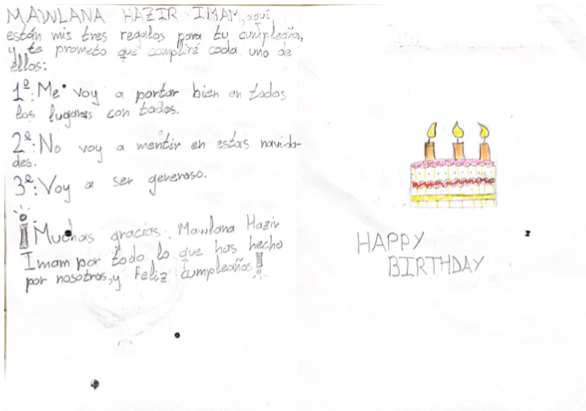 MAWLANA HAZIR IMAM, aquí
están mis tres regalos para tu cumpleaños,
y te prometo que cumpliré cada uno de
ellos:
1º: Me voy a portar bien en todos
los lugares con todos.
2º: No voy a mentir en estas navida-
des.
3º: Voy a ser generoso.
¡Muchas gracias, Mawlana Hazir
Imam por todo lo que has hecho
por nosotros, y feliz cumpleaños!
HAPPY
BIRTHDAY